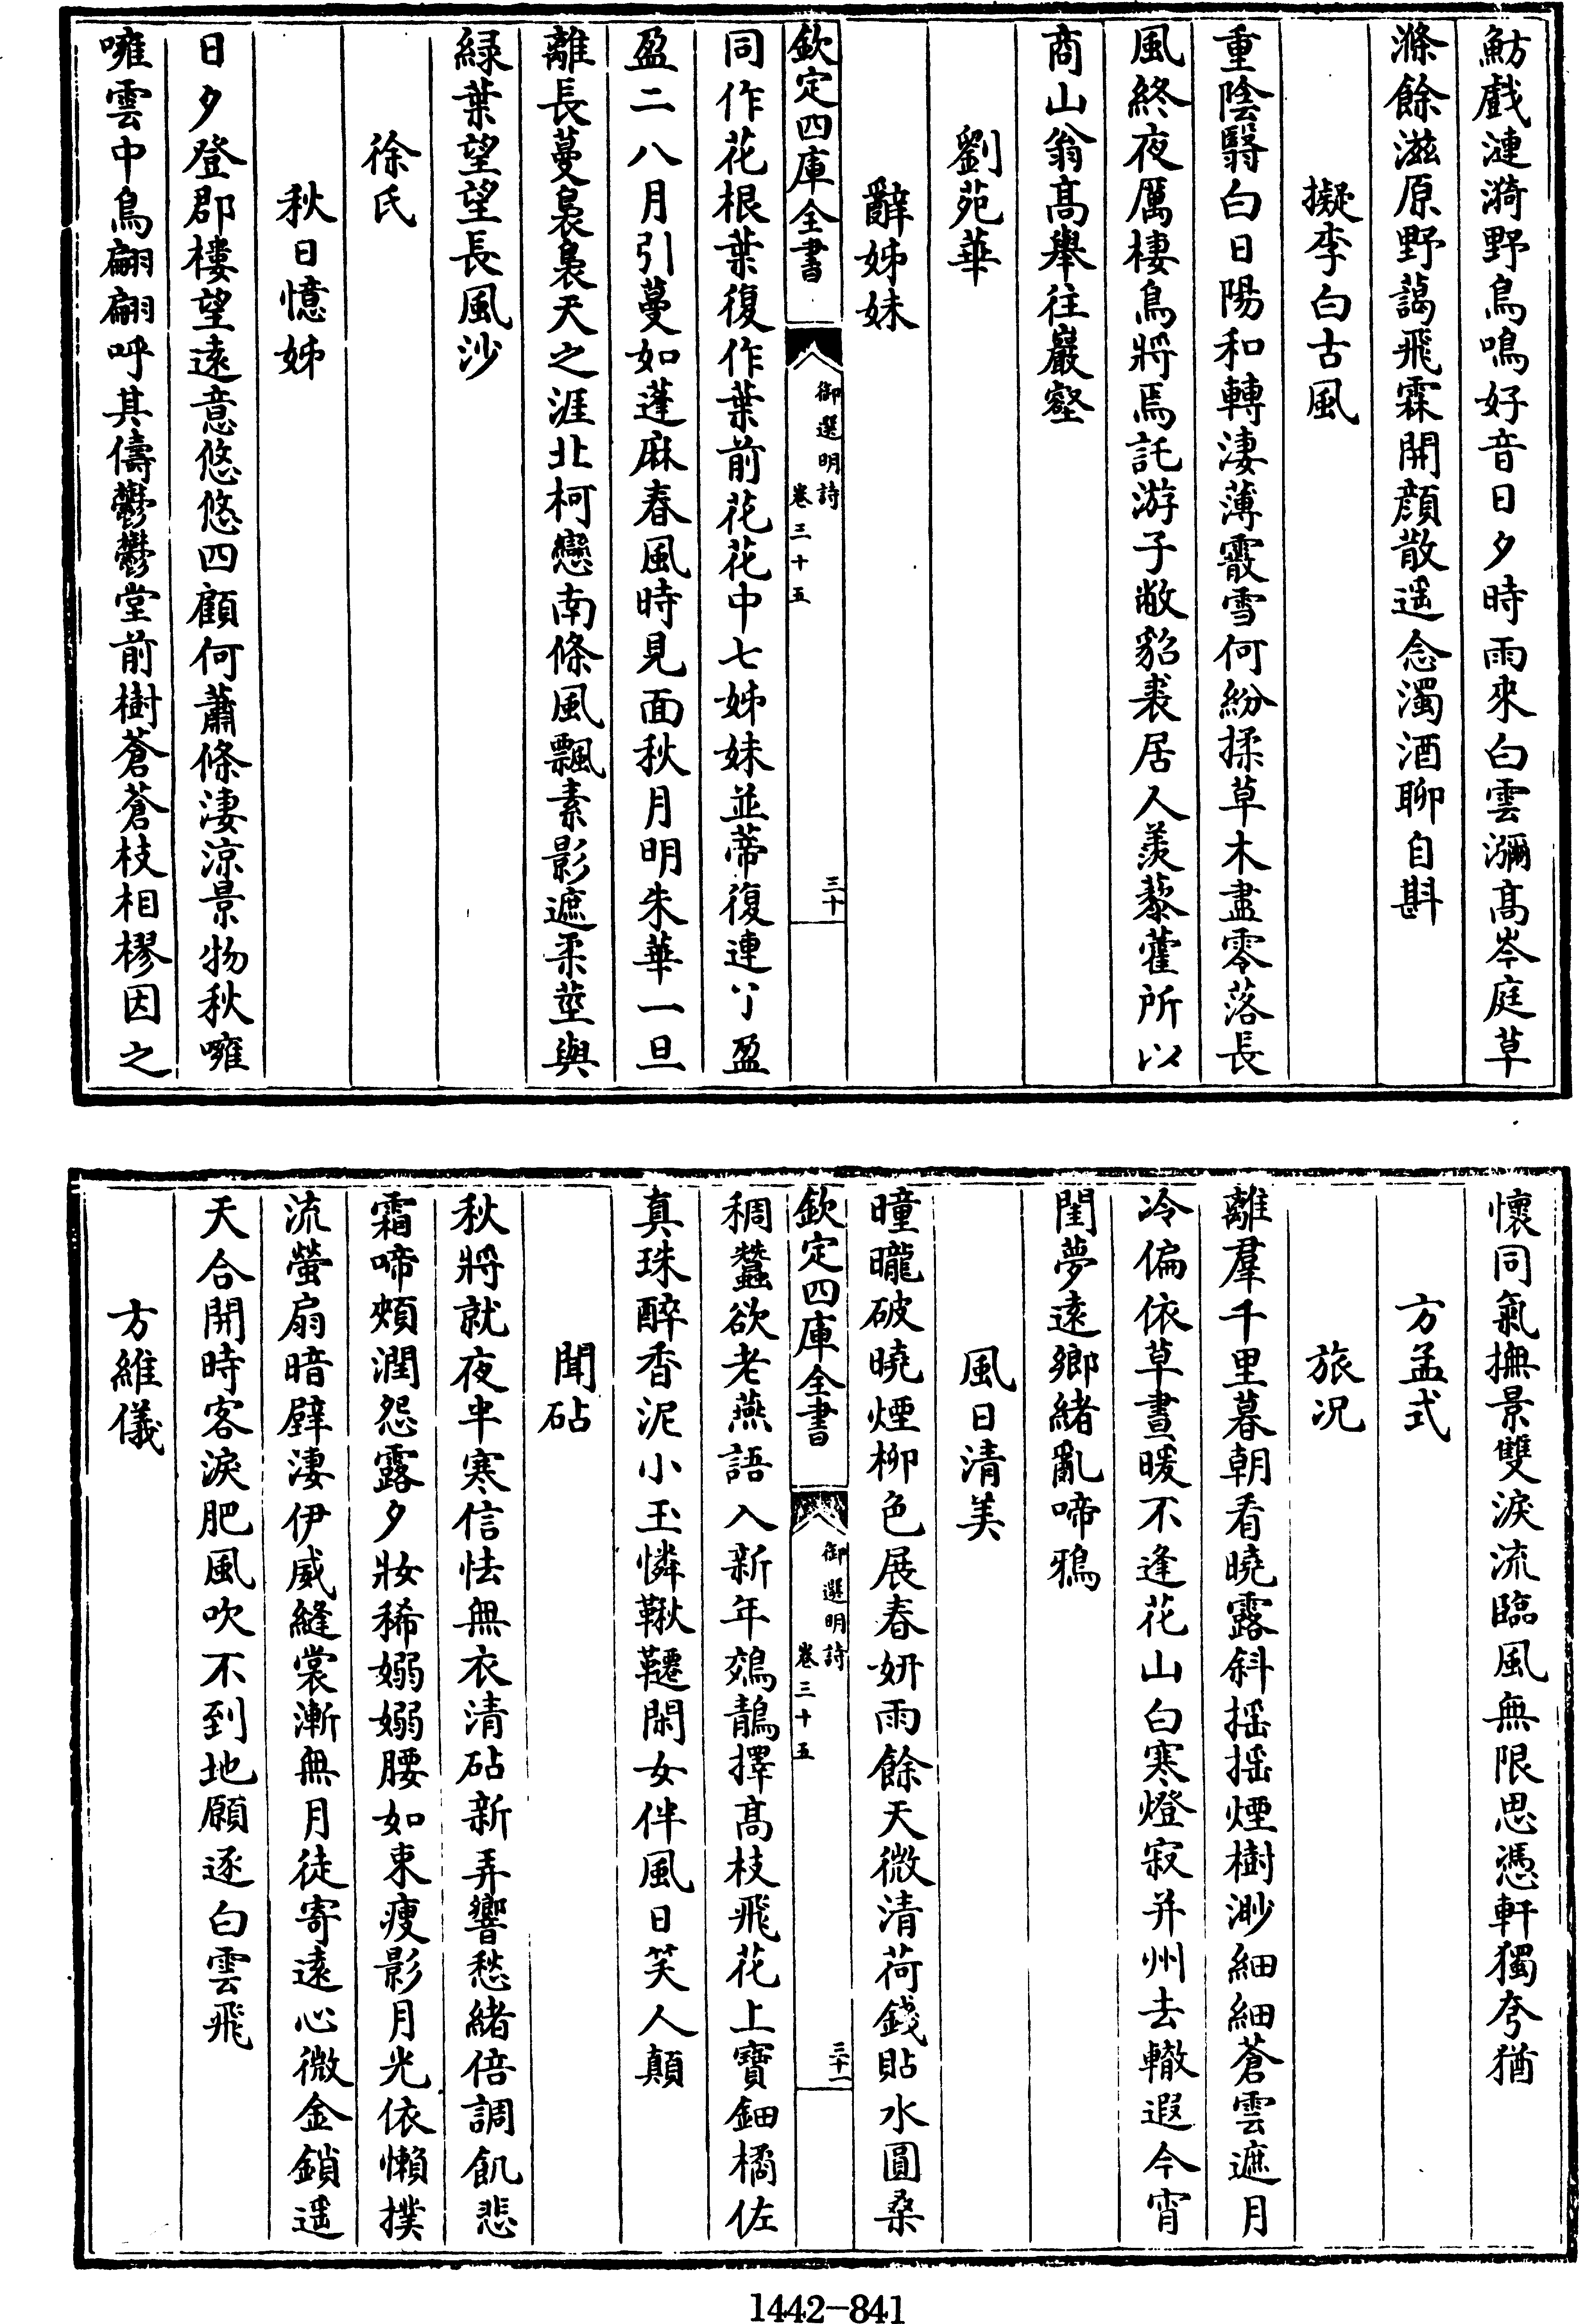 魴戲漣漪野鳥鳴好音日夕時雨來白雲瀰髙岑庭草
滌餘滋原野藹飛霖開顔散遥念濁酒聊自斟
擬李白古風
重陰翳白日陽和轉淒薄霰雪何紛揉草木盡零落長
風終夜厲棲鳥將焉託游子敝貂裘居人羨藜藿所以
商山翁髙舉往巖壑
劉苑華
辭姊妹
欽定四庫全書
御選明詩
卷三十五
三十
同作花根葉復作葉前花花中七姊妹並蒂復連丫盈
盈二八月引蔓如蓬麻春風時見面秋月明朱華一旦
離長蔓裊裊天之涯北柯戀南條風飄素影遮柔莖與
緑葉望望長風沙
徐氏
秋日憶姊
日夕登郡樓望逺意悠悠四顧何蕭條淒涼景物秋嗈
嗈雲中鳥翩翩呼其儔鬱鬱堂前樹蒼蒼枝相樛因之
懷同氣撫景雙淚流臨風無限思憑軒獨夸猶
方孟式
旅况
離羣千里暮朝看曉露斜揺揺煙樹渺細細蒼雲遮月
冷偏依草晝暖不逢花山白寒燈寂并州去轍遐今宵
閨夢逺鄉緒亂啼鴉
風日清美
曈曨破曉煙柳色展春妍雨餘天微清荷錢貼水圓桑
欽定四庫全書
御選明詩
卷三十五
三十一
稠蠶欲老燕語入新年鵁鶄擇髙枝飛花上寶鈿橘佐
真珠醉香泥小玉憐鞦韆閑女伴風日笑人顛
聞砧
秋將就夜半寒信怯無衣清砧新弄響愁緒倍調飢悲
霜啼頰潤怨露夕妝稀嫋嫋腰如束瘦影月光依懶撲
流螢扇暗壁淒伊威縫裳漸無月徒寄逺心微金鎖遥
天合開時客淚肥風吹不到地願逐白雲飛
方維儀
1442-841